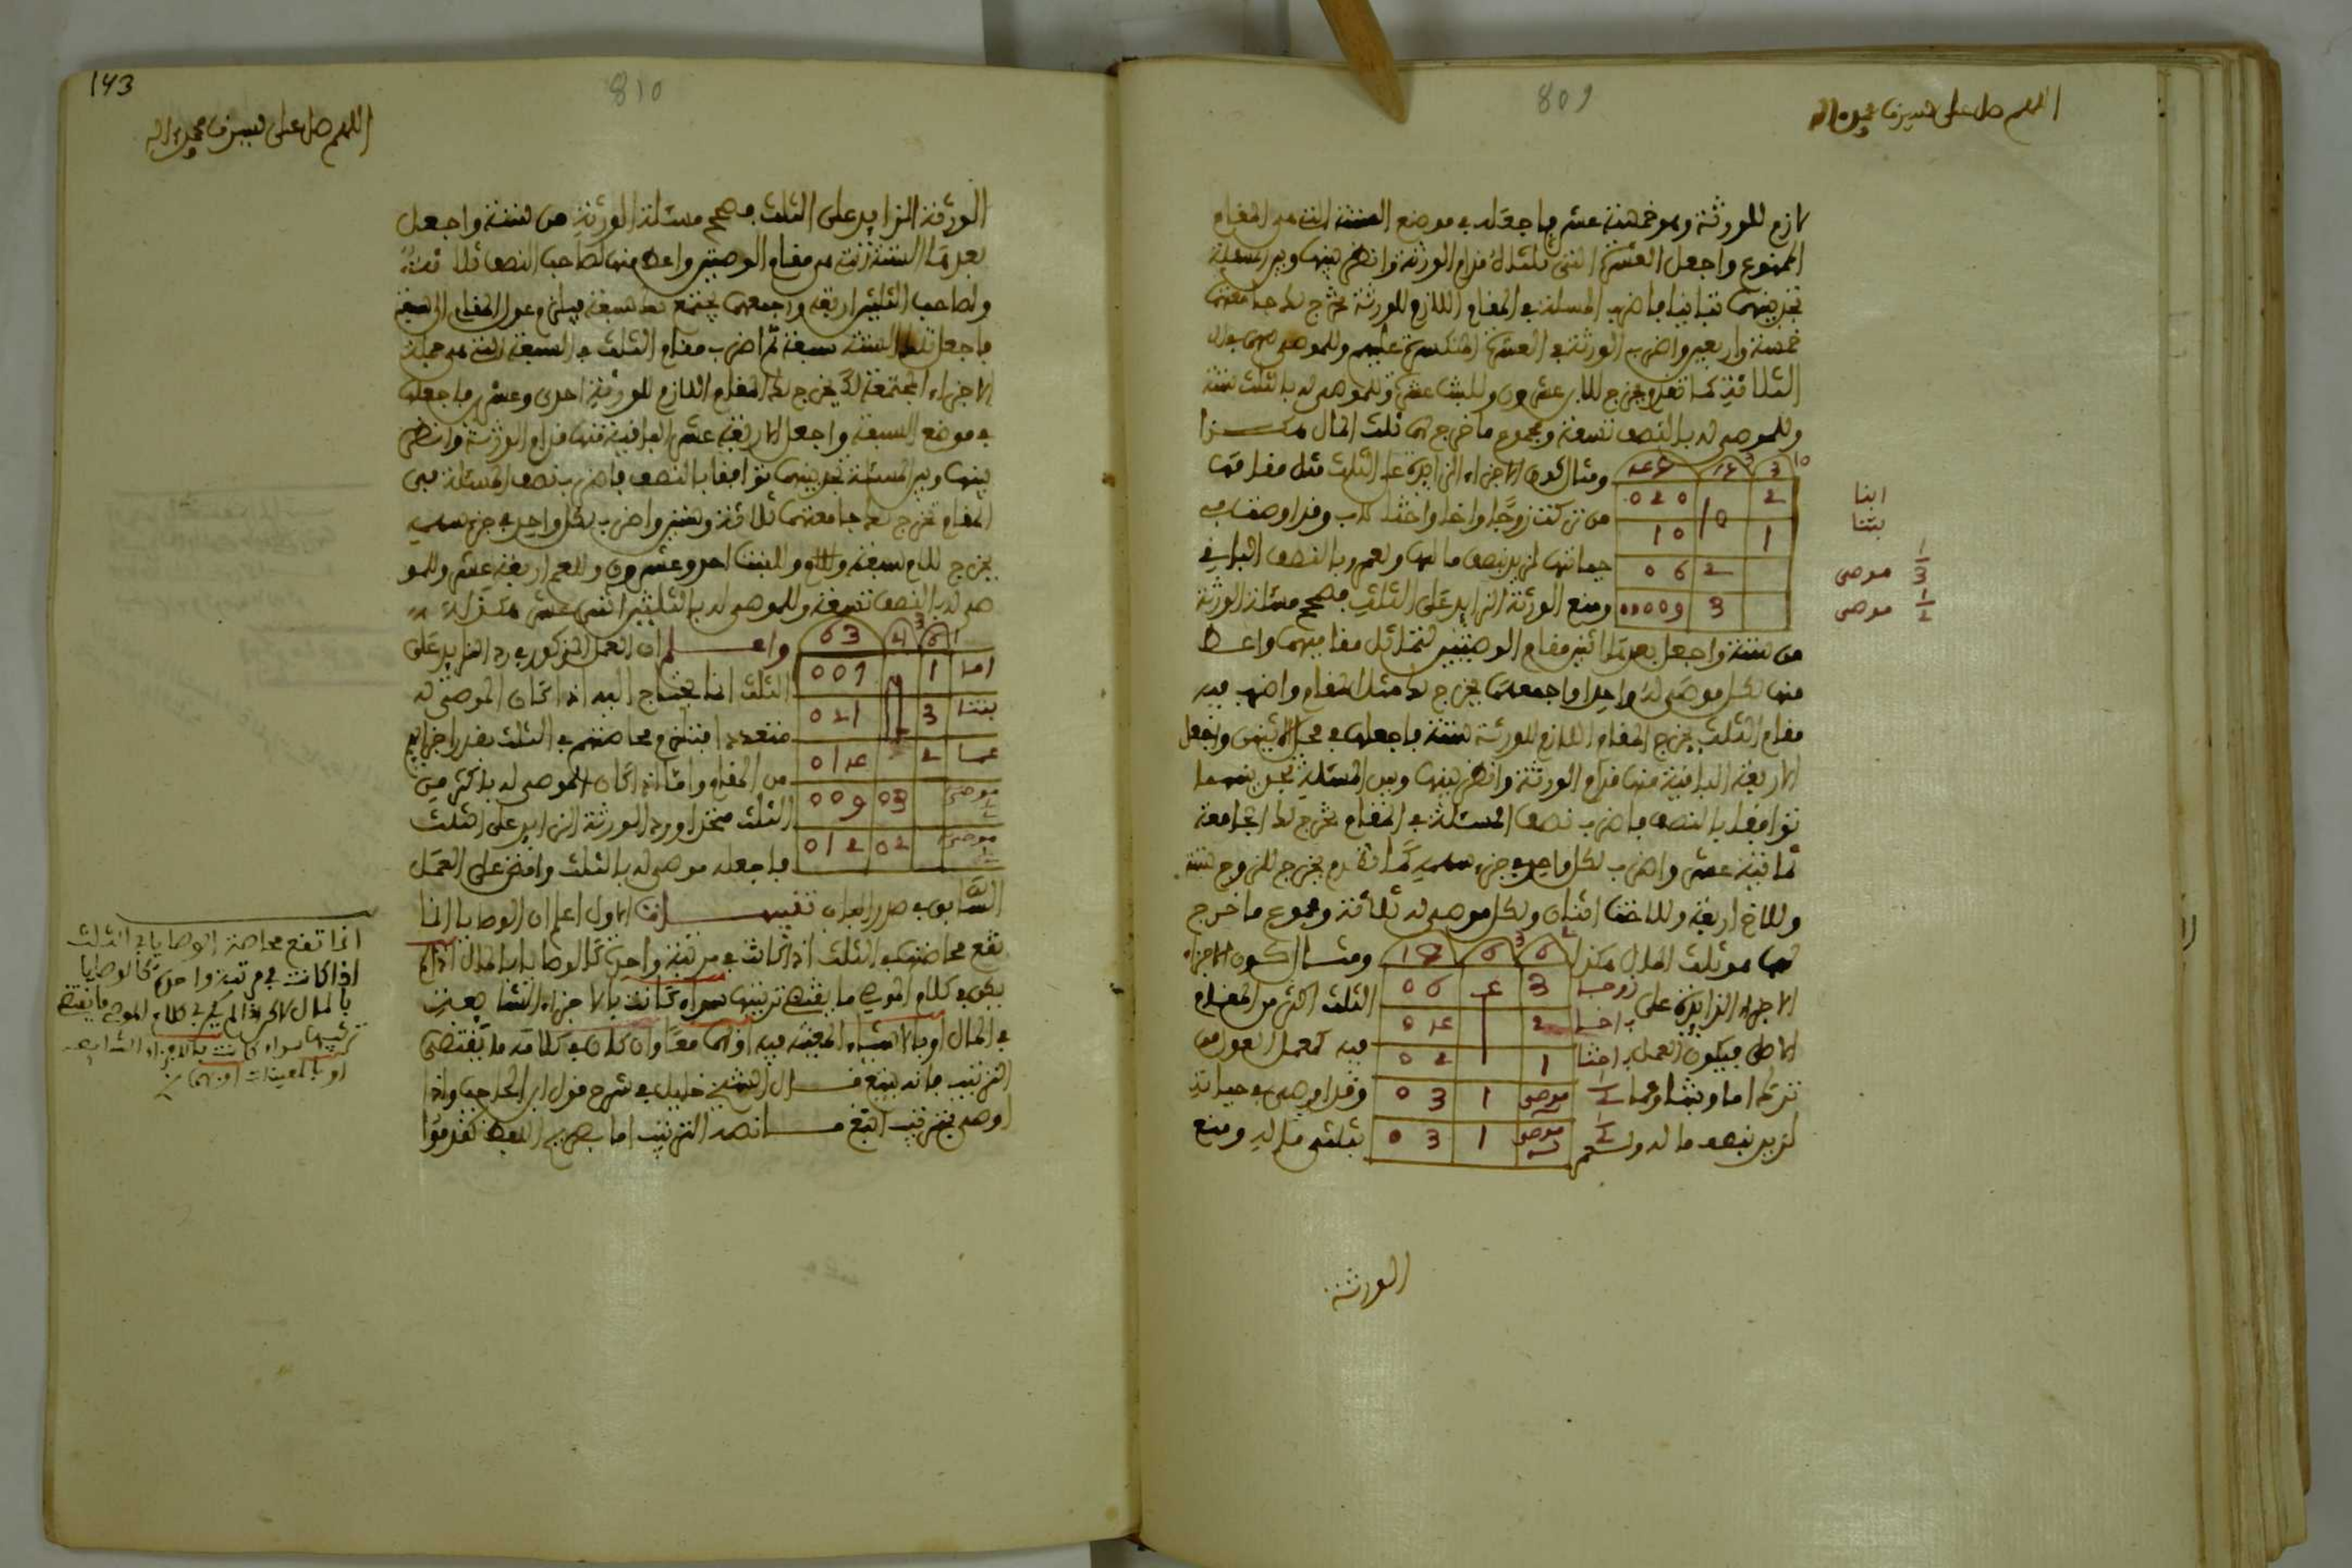 809
اللهم صل على سيدنا محمد وآله
لازم للورثة وهو خمسة عشر فاجعله في موضع الستة التي هي المقام
المجموع واجعل العشرة التي ثلثاه فرام الورثة وانظر بينها وبين المسئلة
تجد بينهما تباينا فاضرب المسئلة في المقام اللازم للورثة تخرج لك جامعتهما
خمسة واربعين واضرب للورثة في العشرة المنكسرة عليهم وللموصى لهم في
الثلاثة كما تقدم يخرج للابن عشرون وللبنت عشرة وللموصى له بالثلث ستة
وللموصى له بالنصف تسعة ومجموع ما خرج لهما ثلث المال هكذا
ومثال كون الاجزاء الزايدة على الثلث مثل مقامها
من تركت زوجا واخا واختا لاب وقد اوصت في
حياتها لزيد بنصف مالها ولعمرو بالنصف الباقي
ومنع الورثة الزايد على الثلث فصحح مسئلة الورثة
ابنا
بنتا
1/3 موصى
1/2 موصى
3 10
2 020
1 10
2 06
3 0009
من ستة واجعل بعدها اثنين مقام الوصيتين لتماثل مقاميهما واعط
منها لكل موصى له واحدا واجمعهما يخرج لك مثل المقام واضرب فيه
مقام الثلث يخرج المقام اللازم للورثة ستة فاجعلها في محل الاثنين واجعل
الاربعة الباقية منها فرام الورثة وانظر بينها وبين المسئلة تجد بينهما
توافقا بالنصف فاضرب نصف المسئلة في المقام تخرج لك الجامعة
ثمانية عشر واضرب لكل واحد في جزء سهمه كما تقدم يخرج للزوج ستة
وللاخ اربعة وللاخت اثنان ولكل موصى له ثلاثة ومجموع ما خرج
لهما هو ثلث المال هكذا
ومثال كون الاجزاء
الاجزاء الزايدة على
الثلث اكثر من المقام
الاصل فيكون العمل
فيه كعمل العول من
ترك اما وبنتا وعما
وقد اوصى في حياته
لزيد بنصف ماله ولعمر
بثلثي ماله ومنع
6 6 18
زوجا 3 4 06
اخا 2 04
اختا 1 02
موصى 1 03
موصى 1 03
الورثة
143
810
اللهم صل على سيدنا محمد وآله
الورثة الزايد على الثلث فصحح مسئلة الورثة من ستة واجعل
بعدها الستة التي هي مقام الوصيتين واعط منها لصاحب النصف ثلاثة
ولصاحب الثلثين اربعة واجمعهما يجتمع لك سبعة فيلزم عول المقام الى سبعة
فاجعل تلك الستة سبعة ثم اضرب مقام الثلث في السبعة التي هي جملة
الاجزاء المجتمعة لك يخرج لك المقام اللازم للورثة احدى وعشرين فاجعلها
في موضع السبعة واجعل الاربعة عشر الباقية منها فرام الورثة وانظر
بينها وبين المسئلة تجد بينهما توافقا بالنصف فاضرب نصف المسئلة في
المقام تخرج لك جامعتهما ثلاثة وستين واضرب لكل واحد في جزء سهمه
يخرج للام سبعة وللبنت احد وعشرون وللعم اربعة عشر وللمو
صى له بالنصف تسعة وللموصى له بالثلثين اثنى عشر هكذا
واعلم ان العمل المذكور في رد الزايد على
الثلث انما يحتاج اليه اذا كان الموصى له
متعددا فيلزم محاصتهم في الثلث بقدر اجزايهم
من المقام واما اذا كان الموصى له باكثر من
الثلث متحدا ورد الورثة الزايد على الثلث
فاجعله موصى له بالثلث وامض على العمل
63 6
اما 1 007
بنتا 3 021
عما 2 014
موصى 03 009
موصى 02 012
السابق في صدر الباب تنبيهات الاول اعلم ان الوصايا انما
تقع محاصتها في الثلث اذا كانت في مرتبة واحدة كالوصايا بالمال اذا لم
يكن في كلام الموصي ما يقتضي ترتيبها سواء كانت بالاجزاء الشايعة
في المال او بالاشياء المعينة فيه او بهما معا وان كان في كلامه ما يقتضي
الترتيب فانه يتبع قال الشيخ خليل في شرح قول ابن الحاجب واذا
اوصى بترتيب اتبع ما نصه الترتيب اما بصريح اللفظ كقدموا
انما تقع محاصة الوصايا في الثلث
اذا كانت في مرتبة واحدة كالوصايا
بالمال لاخر اذا لم يكن في كلام الموصي ما يقتضي
ترتيبها سواء كانت بالاجزاء الشايعة
او بالمعينات او بهما